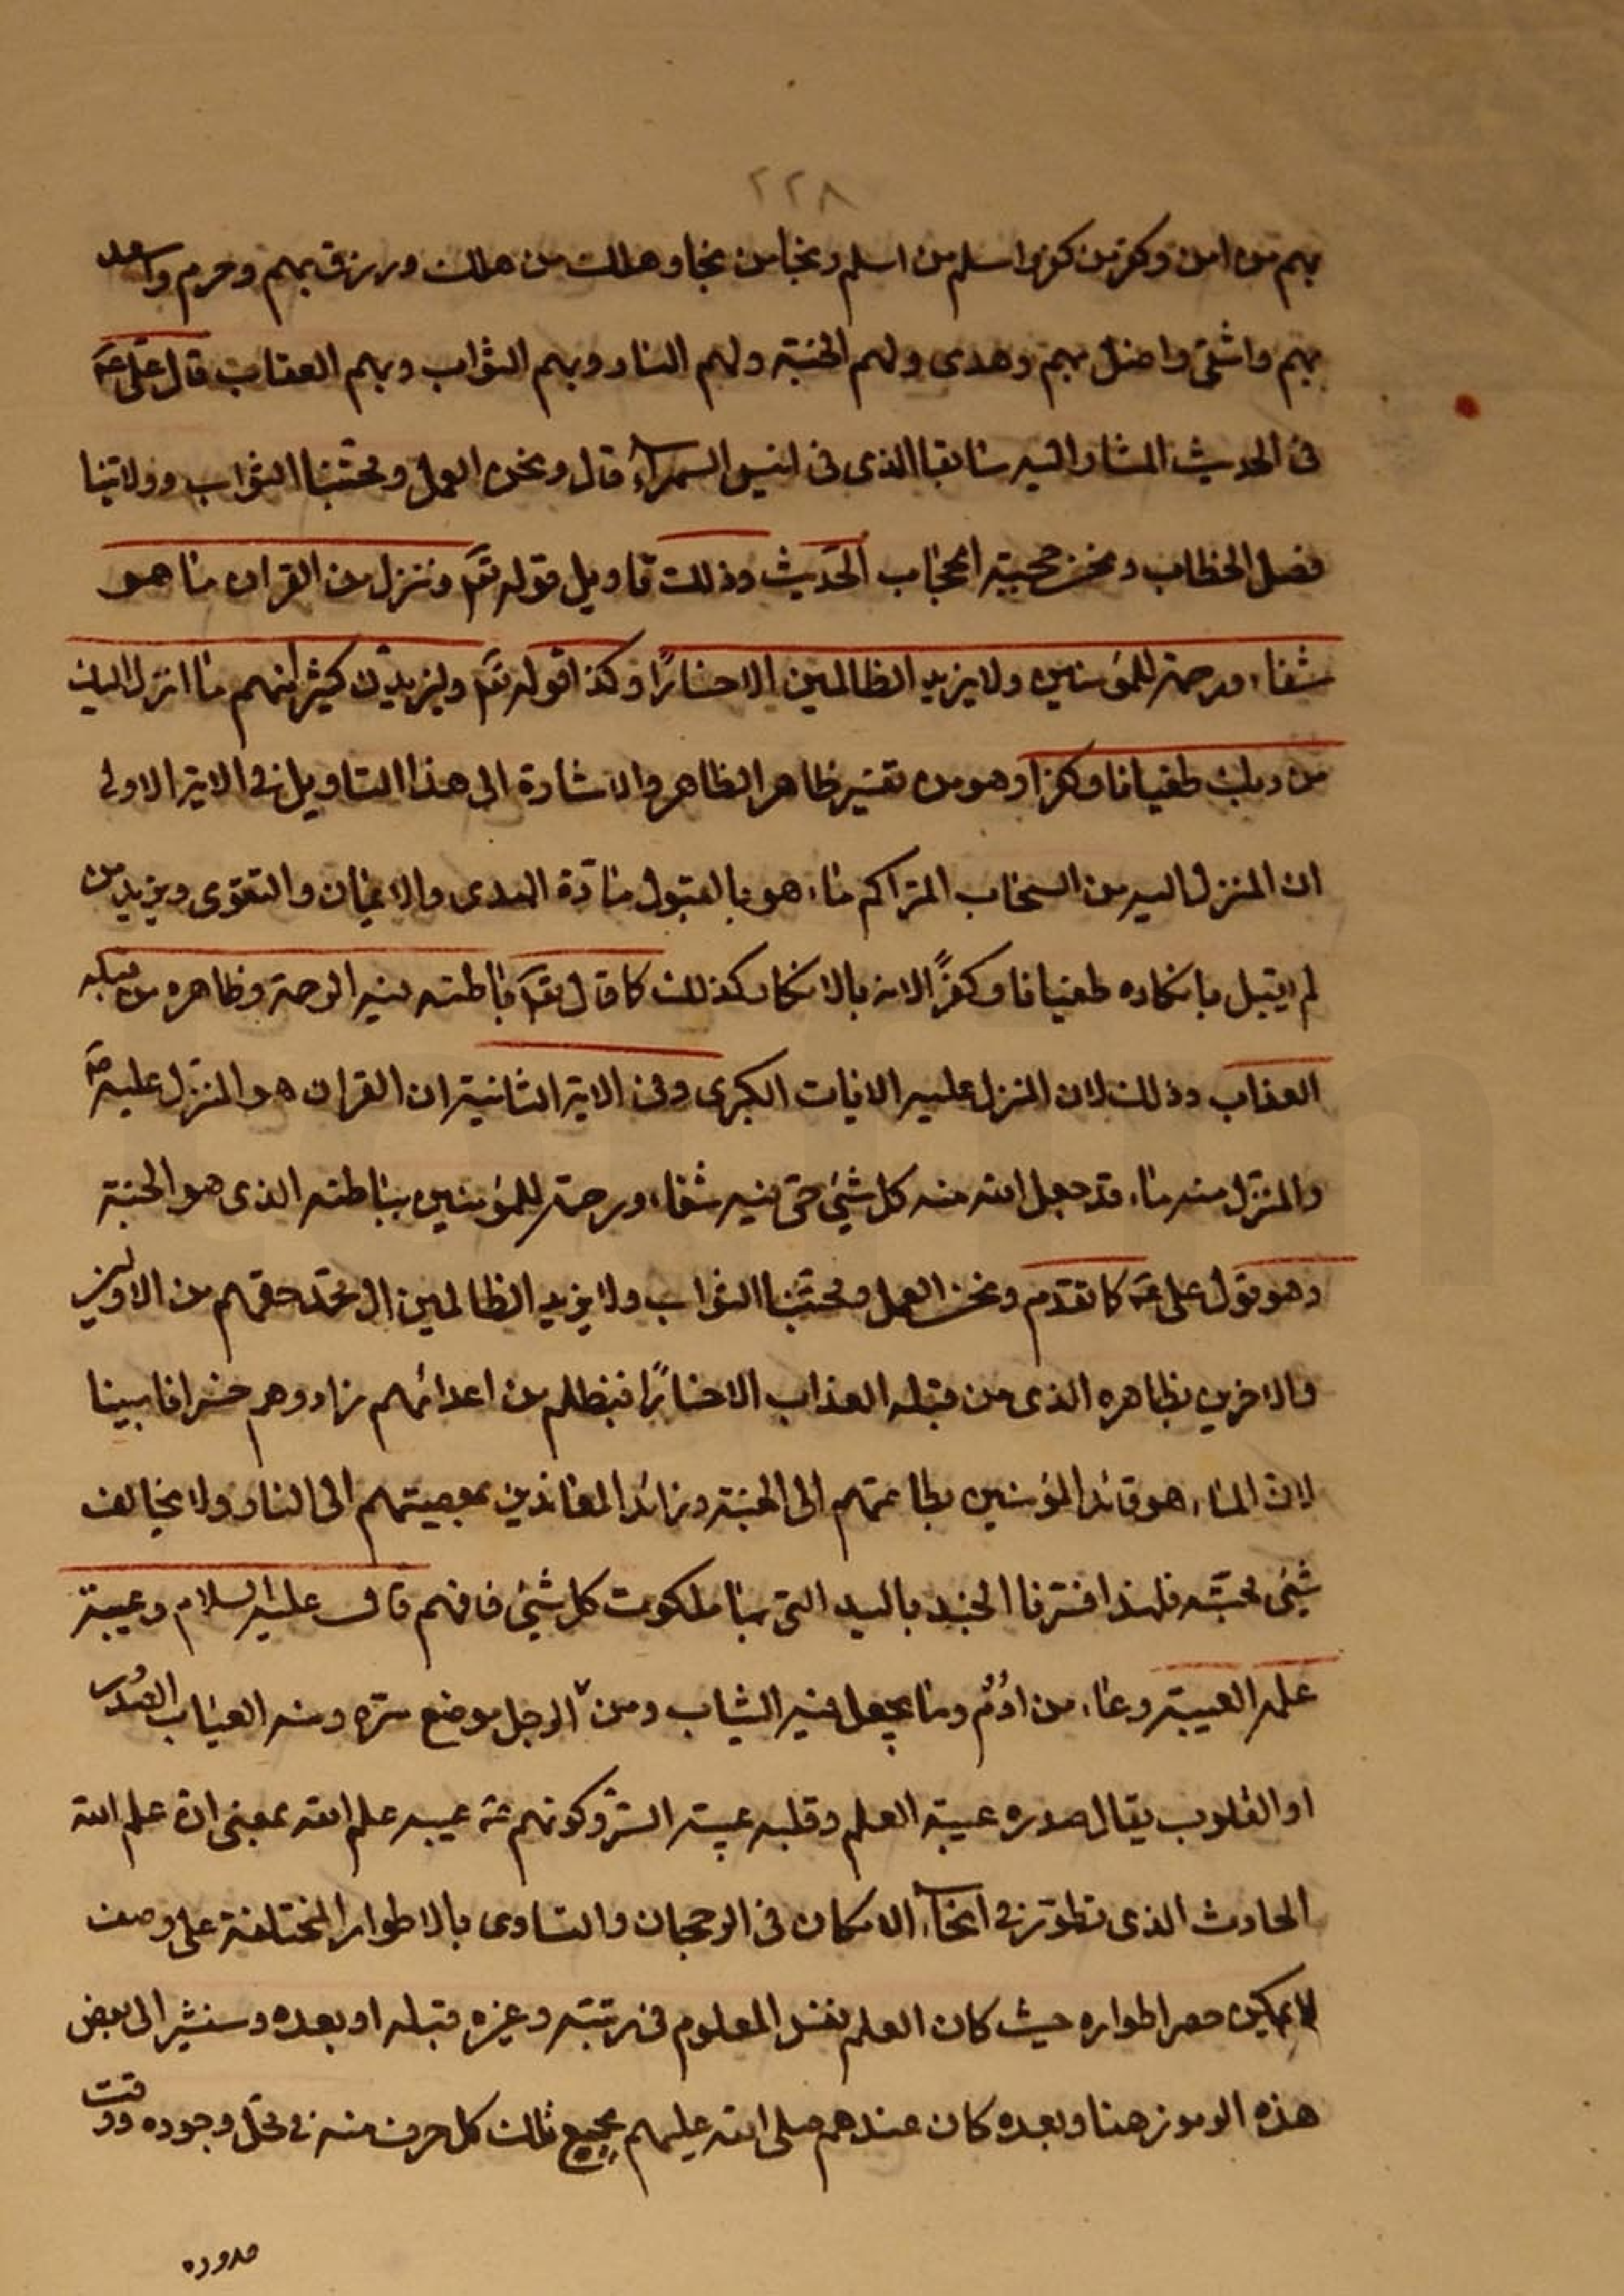 ٢٢٨
بهم من امن وكفر من كفر واسلم من اسلم ونجا من نجا وهلك من هلك ورزق بهم وحرم واسعد
بهم واشقى واضل بهم وهدى ولهم الجنة ولهم النار وبهم الثواب وبهم العقاب قال على ع
فى الحديث المشار اليه سابقا الذى فى انيس السمراء قال ونحن العمل ومحبتنا الثواب وولايتنا
فصل الخطاب ونحن حجبة الحجاب الحديث وذلك تاويل قوله تع وننزل من القران ما هو
شفاء ورحمة للمؤمنين ولا يزيد الظالمين الا خسارًا وكذا قوله تع وليزيدن كثيرا منهم ما انزل اليك
من ربك طغيانا وكفرا وهو من تفسير ظاهر الظاهر والاشارة الى هذا التاويل فى الاية الاولى
ان المنزل اليه من السحاب المتراكم ماء هو بالقبول مادة الهدى والايمان والتقوى ويزيد من
لم يقبل بانكاره طغيانا وكفرًا لانه بالانكار كذلك كما قال تع باطنه فيه الرحمة وظاهره من قبله
العذاب وذلك لان المنزل عليه الايات الكبرى وفى الاية الثانية ان القران هو المنزل عليه ص
والمنزل منه ماء قد جعل الله منه كل شئ حى فيه شفاء ورحمة للمؤمنين بباطنه الذى هو الجنة
وهو قول على ع كما تقدم ونحن العمل ومحبتنا الثواب ولا يزيد الظالمين ال محمد حقهم من الاولين
والاخرين بظاهره الذى من قبله العذاب الا خسارًا فبظلم من اعدائهم زادوهم خسرانا مبينا
لان الماء هو قائد المؤمنين بطاعتهم الى الجنة وزائد المعاندين بمعصيتهم الى النار ولا يخالف
شئ محبته فلهذا افترقا الجند باليد التى بها ملكوت كل شئ فافهم قال عليه السلام وعيبة
علمه العيبة وعاء من ادم وما يجعل فيه الثياب ومن الرجل موضع سره ومنه العياب الصدور
او القلوب يقال صدره عيبة العلم وقلبه عيبة السر وكونهم ع عيبه علم الله بمعنى ان علم الله
الحادث الذى تطور فى انحاء الامكان فى الرجحان والتساوى بالاطوار المختلفة على وصف
لا يمكن حصر اطواره حيث كان العلم نفس المعلوم فى رتبته وغيره قبله او بعده وسنشير الى بعض
هذه الرموز هنا وبعده كان عندهم صلى الله عليهم بجميع تلك كل حرف منه فى محل وجوده ووقت
حدوده